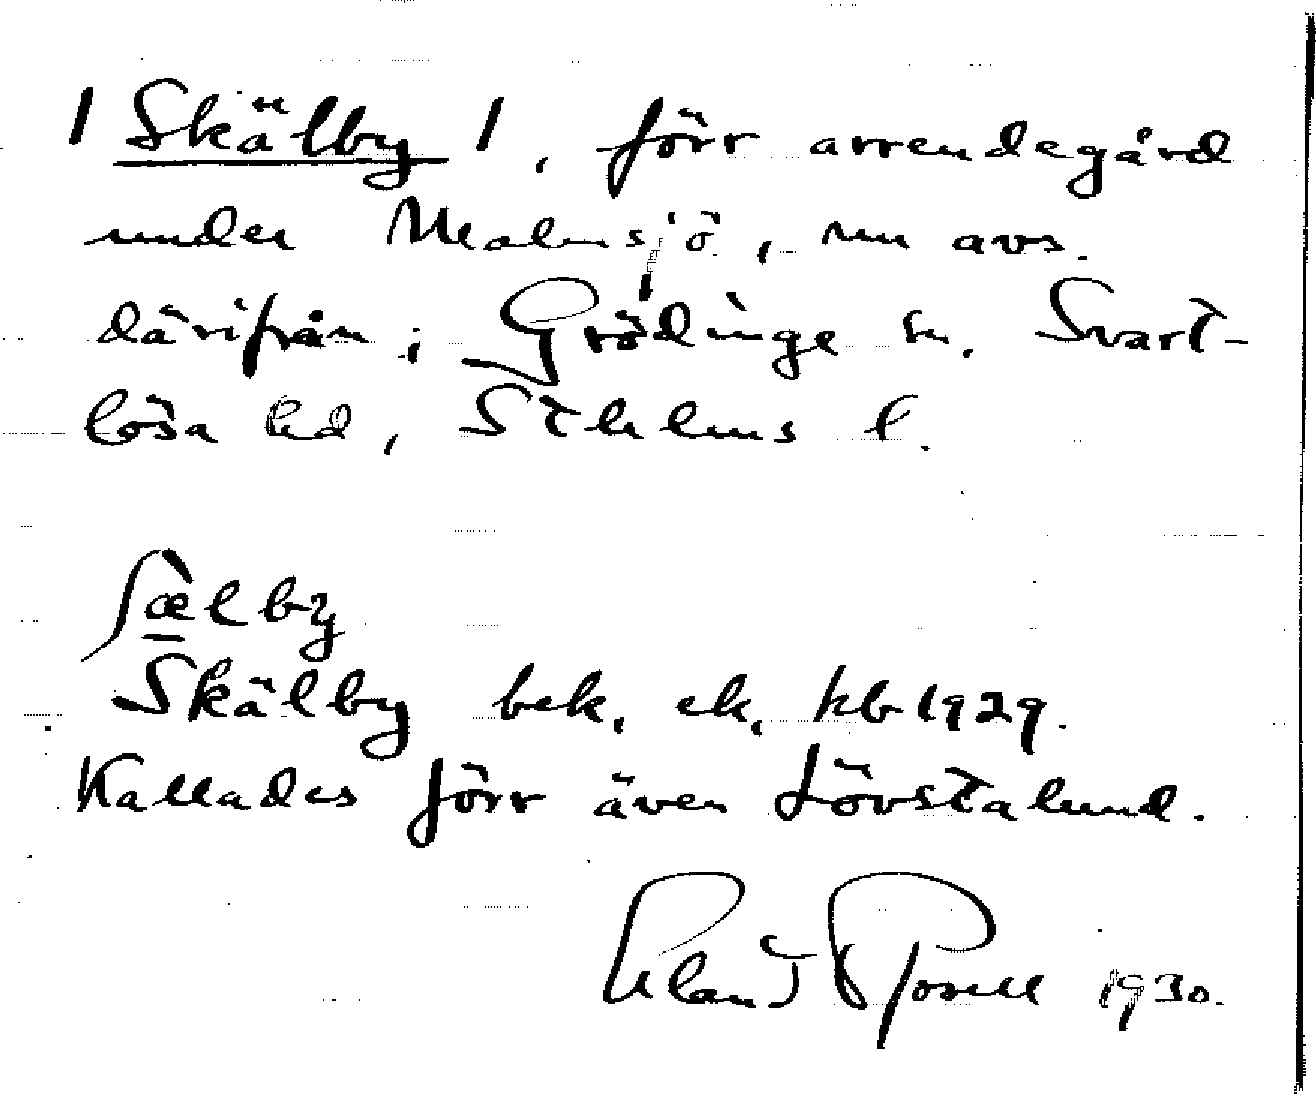 / Skälby /, förr arrendegård
under Malmsjö, nu avs.
därifrån i Grödinge sn. Svart-
lösa hd, Sthlms l.
ʃæ̀lby
Skälby bek. ek. kb 1929.
Kallades förr även Lövstalund.
1930.